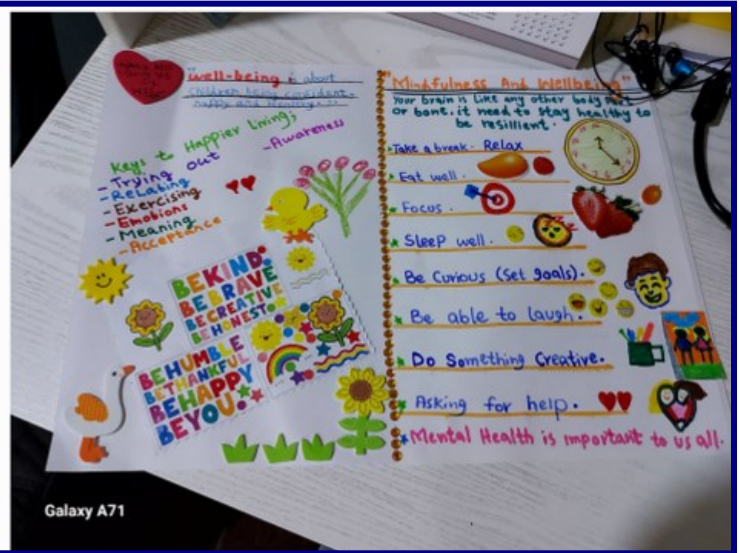 "Well-being is about
children being confident,
happy and healthy."
Keys to Happier Living;
- Trying out
- Relating
- Exercising
- Emotions
- Meaning
- Acceptance
- Awareness
BE KIND.
BE BRAVE
BE CREATIVE
BE HONEST
BE HUMBLE
BE THANKFUL
BE HAPPY
BE YOU.
"Mindfulness And Wellbeing"
Your brain is like any other body part
or bone, it need to stay healthy to
be resillient.
Take a break. Relax
Eat well.
Focus.
Sleep well.
Be Curious (Set goals).
Be able to laugh.
Do Something Creative.
Asking for help.
Mental Health is important to us all.
Galaxy A71